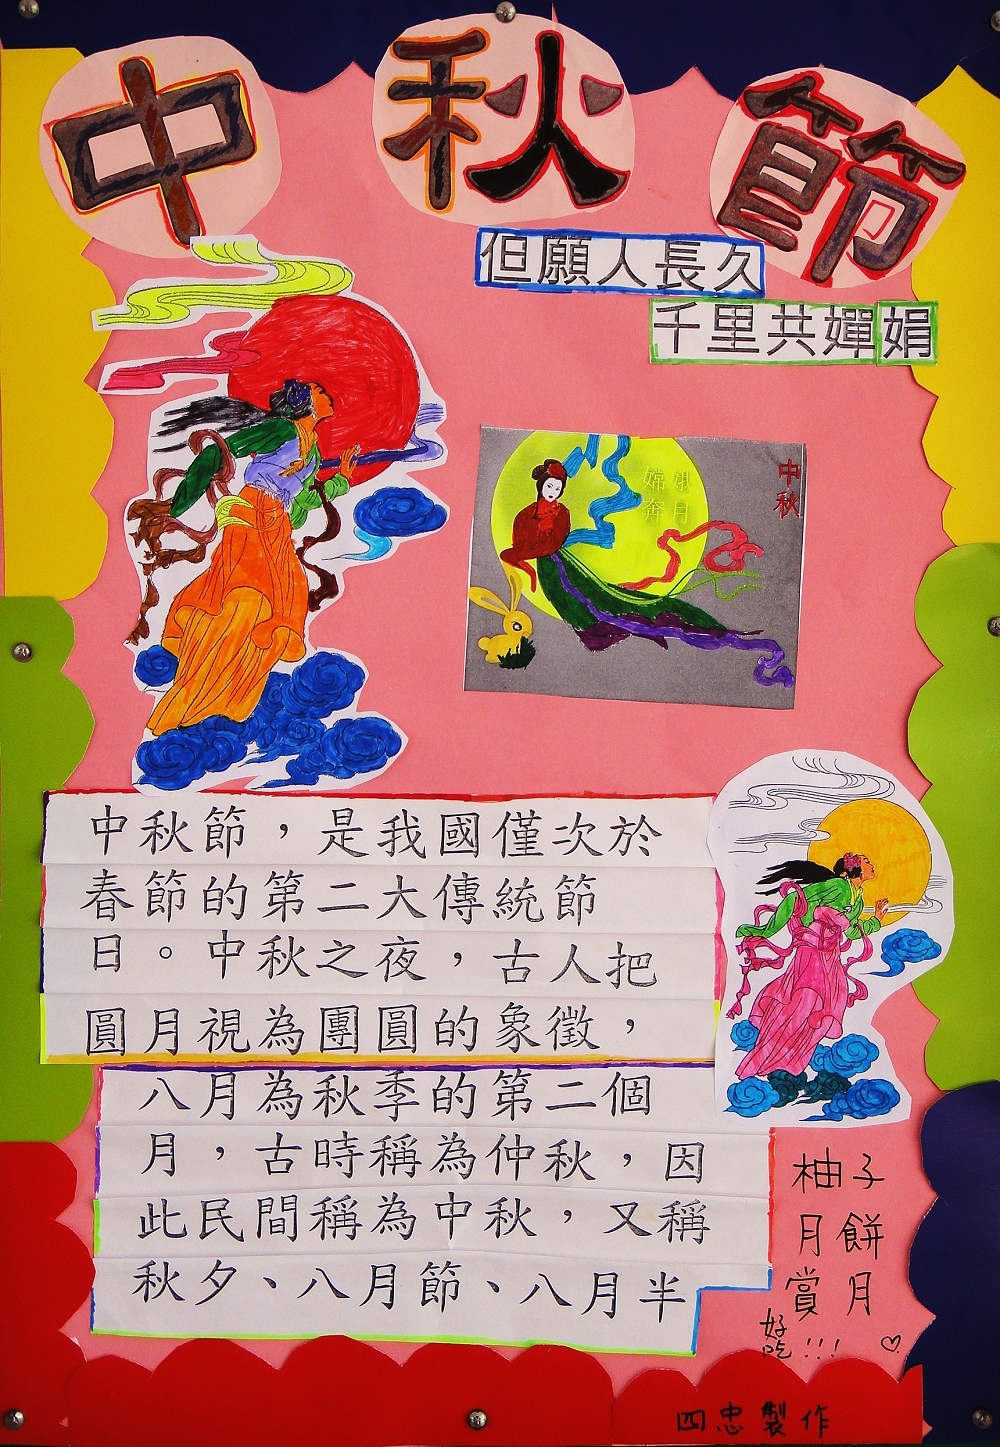 中秋節
但願人長久
千里共嬋娟
中秋
嫦娥
奔月
中秋節，是我國僅次於
春節的第二大傳統節
日。中秋之夜，古人把
圓月視為團圓的象徵，
八月為秋季的第二個
月，古時稱為仲秋，因
此民間稱為中秋，又稱
秋夕、八月節、八月半
柚子
月餅
賞月
好吃!!!♡
四忠製作